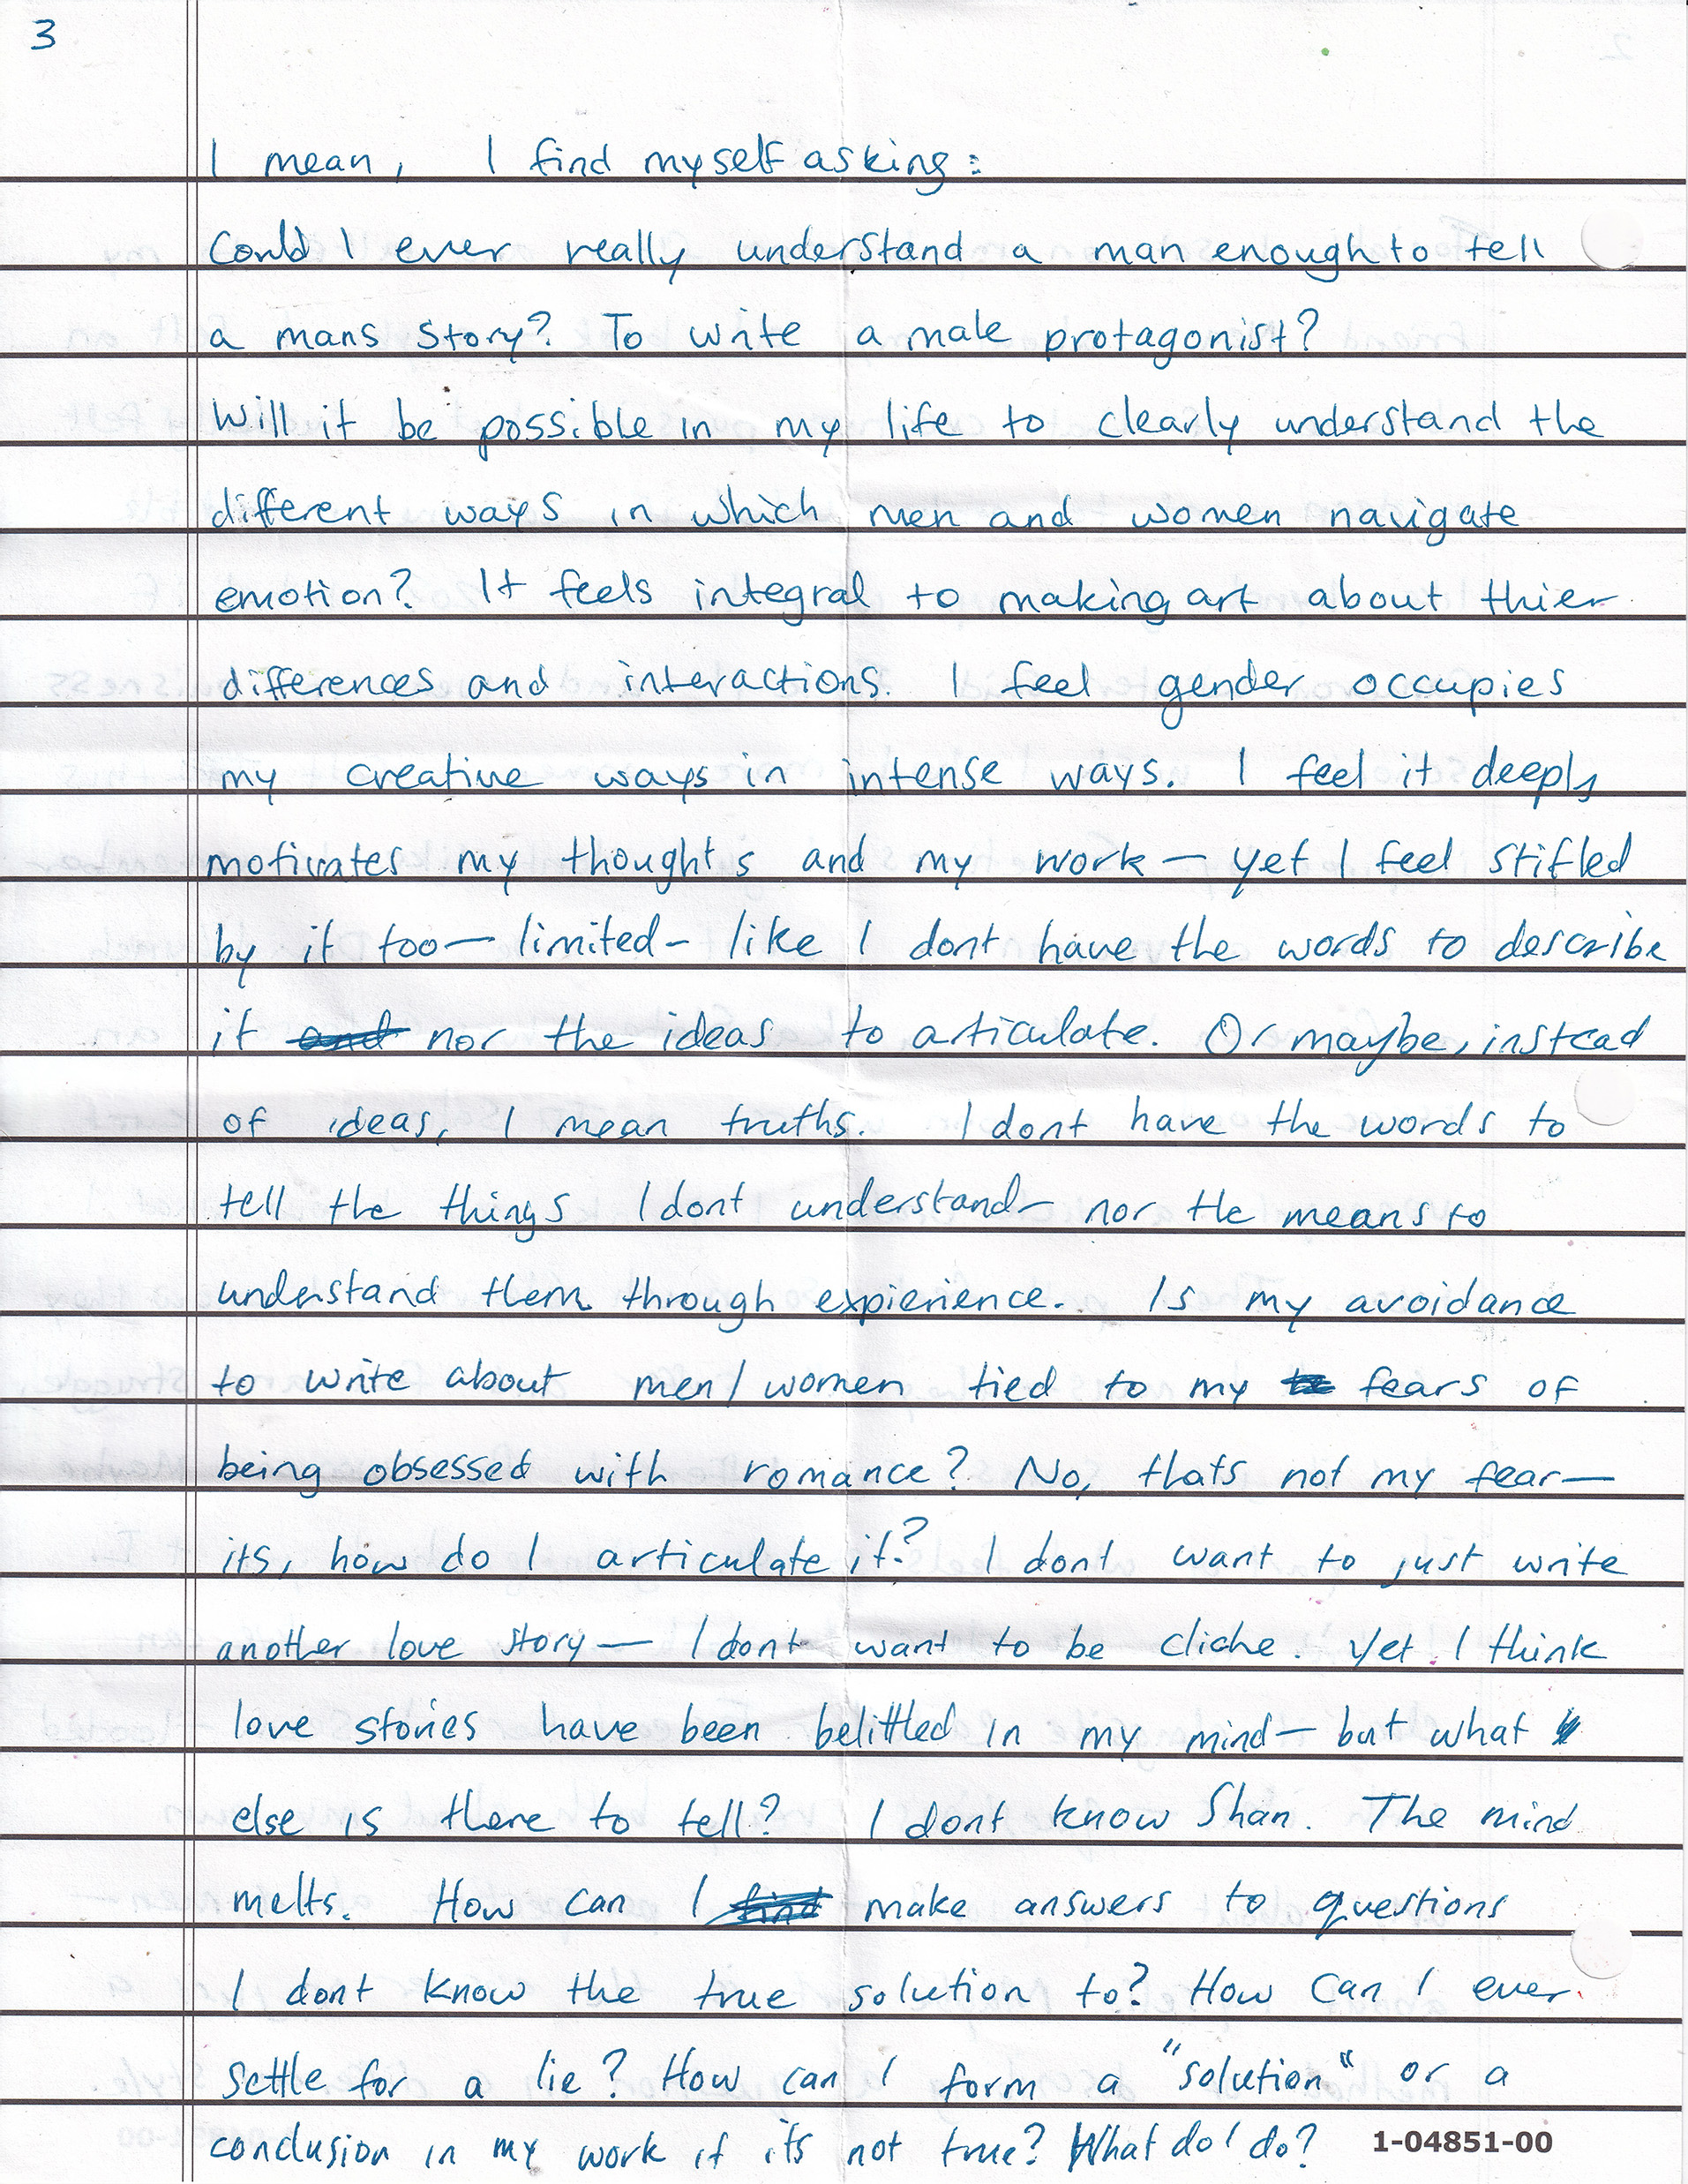 3
I mean, I find myself asking:
Could I ever really understand a man enough to tell
a mans story? To write a male protagonist?
Will it be possible in my life to clearly understand the
different ways in which men and women navigate
emotion? It feels integral to making art about thier
differences and interactions. I feel gender occupies
my creative ways in intense ways. I feel it deeply
motivates my thoughts and my work — yet I feel stifled
by it too — limited — like I dont have the words to describe
it and nor the ideas to articulate. Or maybe, instead
of ideas, I mean truths. I dont have the words to
tell the things I dont understand — nor the means to
understand them through expierience. Is my avoidance
to write about men/women tied to my fears of
being obsessed with romance? No, thats not my fear —
its, how do I articulate it? I dont want to just write
another love story — I dont want to be cliche. Yet I think
love stories have been belittled in my mind — but what
else is there to tell? I dont know Shan. The mind
melts. How can I find make answers to questions
I dont know the true solution to? How can I ever
settle for a lie? How can I form a "solution" or a
conclusion in my work if its not true? What do I do?
1-04851-00